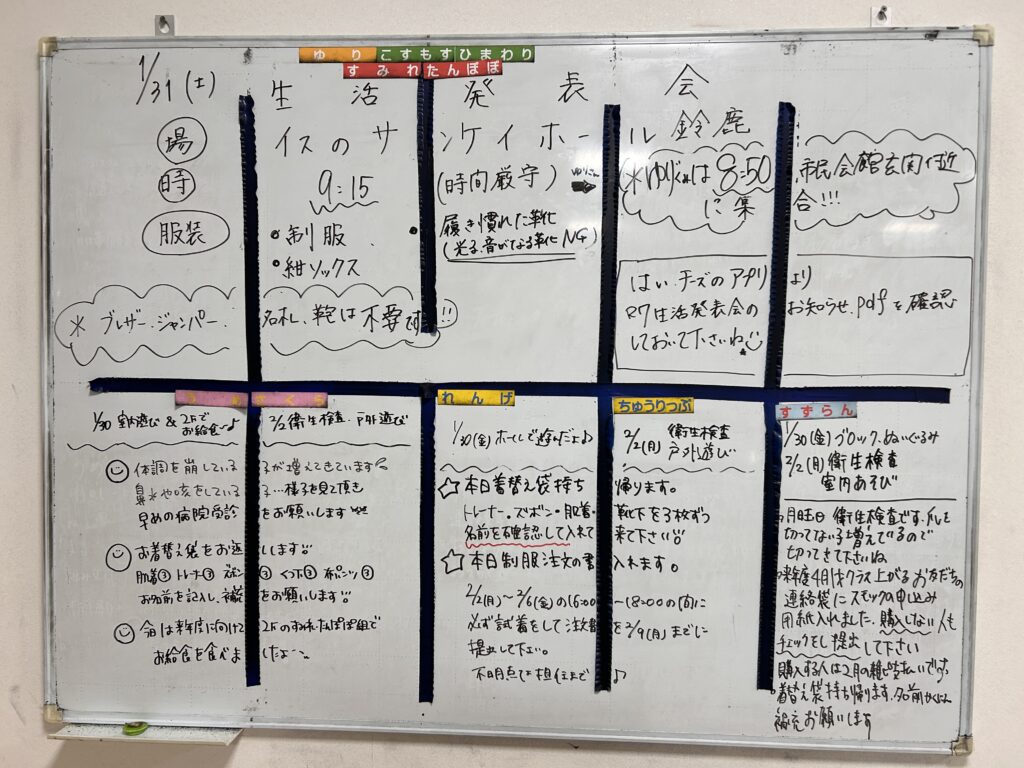 ゆり こすもす ひまわり
すみれ たんぽぽ
1/31(土) 生活発表会
場 イスのサンケイホール鈴鹿
時 9:15 (時間厳守)
※ゆりぐみは8:50 市民会館玄関付近に集合!!!
服装
・制服
・紺ソックス
・履き慣れた靴
(光る、音がなる靴 NG)
※ブレザー、ジャンパー、名札、鞄は不要です!!
はい、チーズのアプリより
R7生活発表会のお知らせ.pdfを確認
しておいて下さいね
さくら
1/30 室内遊び & 2Fでお給食♪
2/2 衛生検査・戸外遊び
体調を崩している子が増えてきています
鼻水や咳をしている子…様子を見て頂き
早めの病院受診をお願いします
お着替え袋をお返しします
肌着③ トレーナー③ ズボン③ くつ下③ 布パンツ③
お名前を記入し、補充をお願いします
今日は来年度に向けて2Fのすみれ・たんぽぽ組で
お給食を食べましたよ〜
れんげ ちゅうりっぷ
1/30(金) ホールで遊んだよ♪
2/2(月) 衛生検査
戸外遊び
☆本日着替え袋持ち帰ります。
トレーナー・ズボン・肌着・靴下を3枚ずつ
名前を確認して入れて来て下さい
☆本日制服注文の書入れます。
2/2(月)〜2/6(金)の16:00〜18:00の間に
必ず試着をして注文書を2/9(月)までに
提出して下さい。
不明点は担任まで♪
すずらん
1/30(金) ブロック、ぬいぐるみ
2/2(月) 衛生検査
室内あそび
・月曜日 衛生検査です。爪を
切ってない子増えているので
切ってきて下さいね
・来年度4月1才クラス上がるお友だちの
連絡袋にスモックの申し込み
用紙入れました。購入しない人も
チェックをし提出して下さい
購入する人は2月の雑費支払いです。
・着替え袋持ち帰ります。名前かくにん
補充お願いします